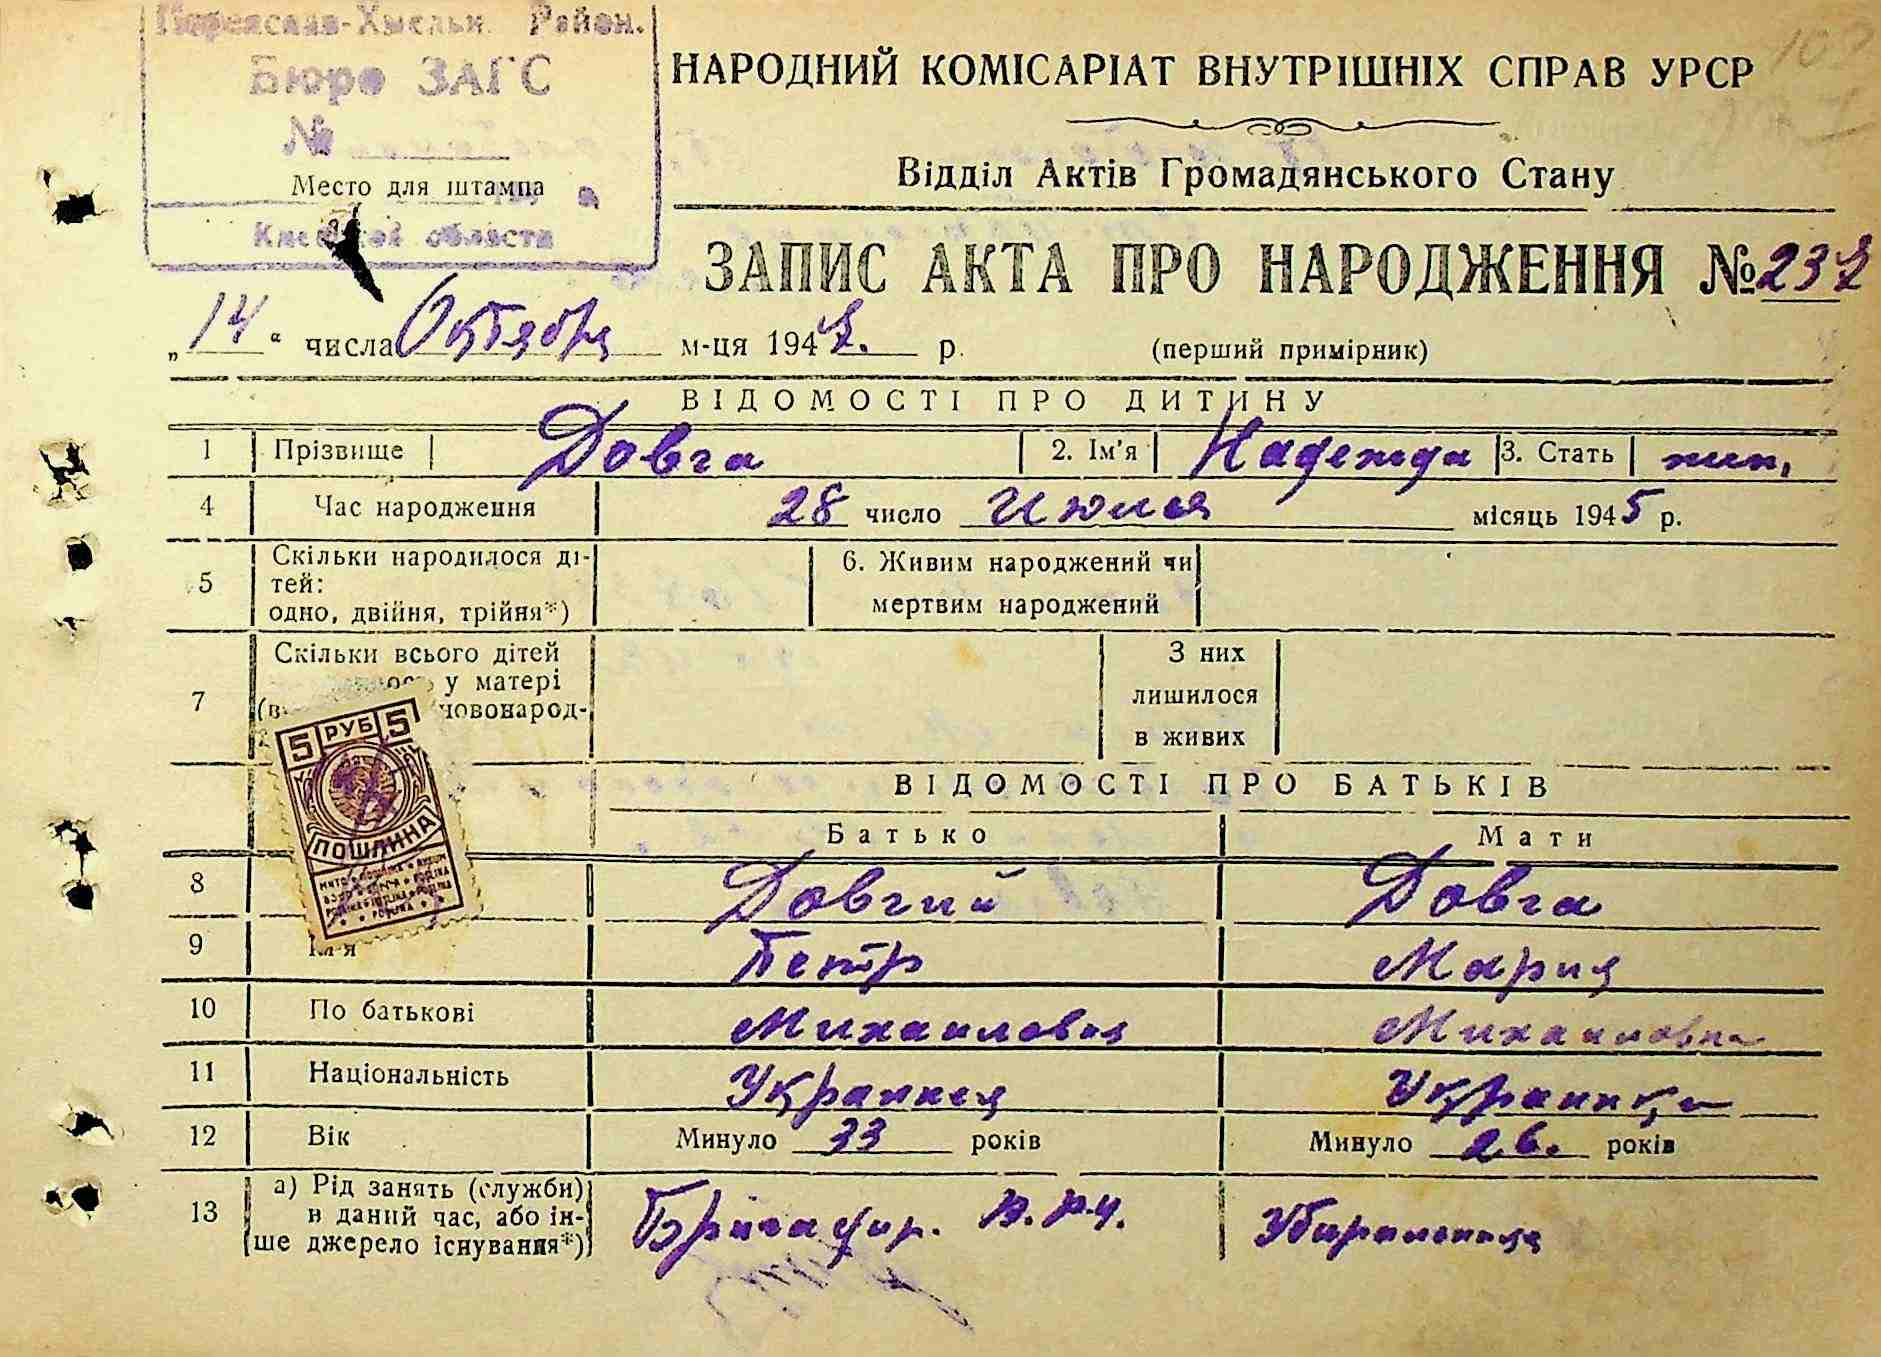 Переяслав-Хмельн. Район.
Бюро ЗАГС
№
Место для штампа
Киевской области
НАРОДНИЙ КОМІСАРІАТ ВНУТРІШНІХ СПРАВ УРСР
Відділ Актів Громадянського Стану
ЗАПИС АКТА ПРО НАРОДЖЕННЯ №
„14“ числа Октября м-ця 194 р. (перший примірник)
ВІДОМОСТІ ПРО ДИТИНУ
1 Прізвище Довга 2. Ім'я Надежда 3. Стать жин.
4 Час народження 28 число Июля місяць 1945 р.
5 Скільки народилося ді-
тей:
одно, двійня, трійня*) 6. Живим народжений чи
мертвим народжений
7 Скільки всього дітей
у матері
новонарод-
З них
лишилося
в живих
5 РУБ 5
ПОШЛИНА
ВІДОМОСТІ ПРО БАТЬКІВ
Батько Мати
8 Довгий Довга
9 Петр Мария
10 По батькові Михайлович Михайловна
11 Національність Украинец Украинка
12 Вік Минуло 33 років Минуло 26. років
13 а) Рід занять (служби)
в даний час, або ін-
ше джерело існування*) Бригадир. Убиральница